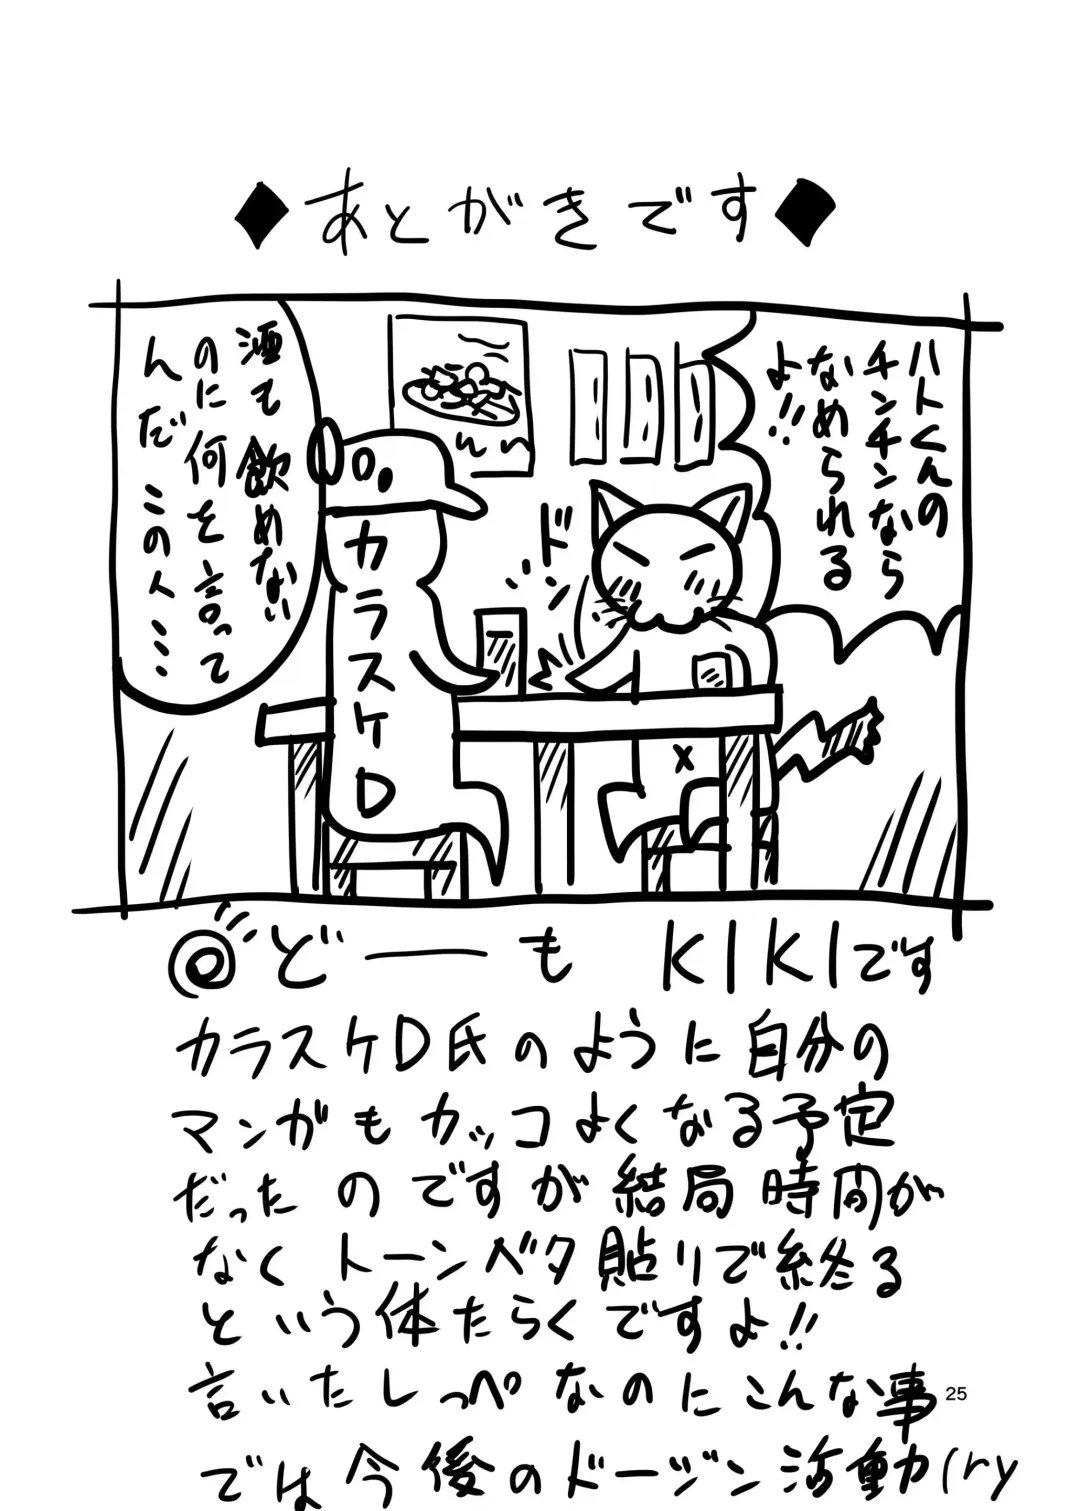 ◆あとがきです◆
ハトくんの
チンチンなら
なめられる
よ!!
ドン
酒も飲めない
のに何を言って
んだこの人…
カラスケD
◎どーーもKIKIです
カラスケD氏のように自分の
マンガもカッコよくなる予定
だったのですが結局時間が
なくトーンベタ貼りで終る
という体たらくですよ!!
言いたしっぺなのにこんな事
では今後のドージン活動(ry
25